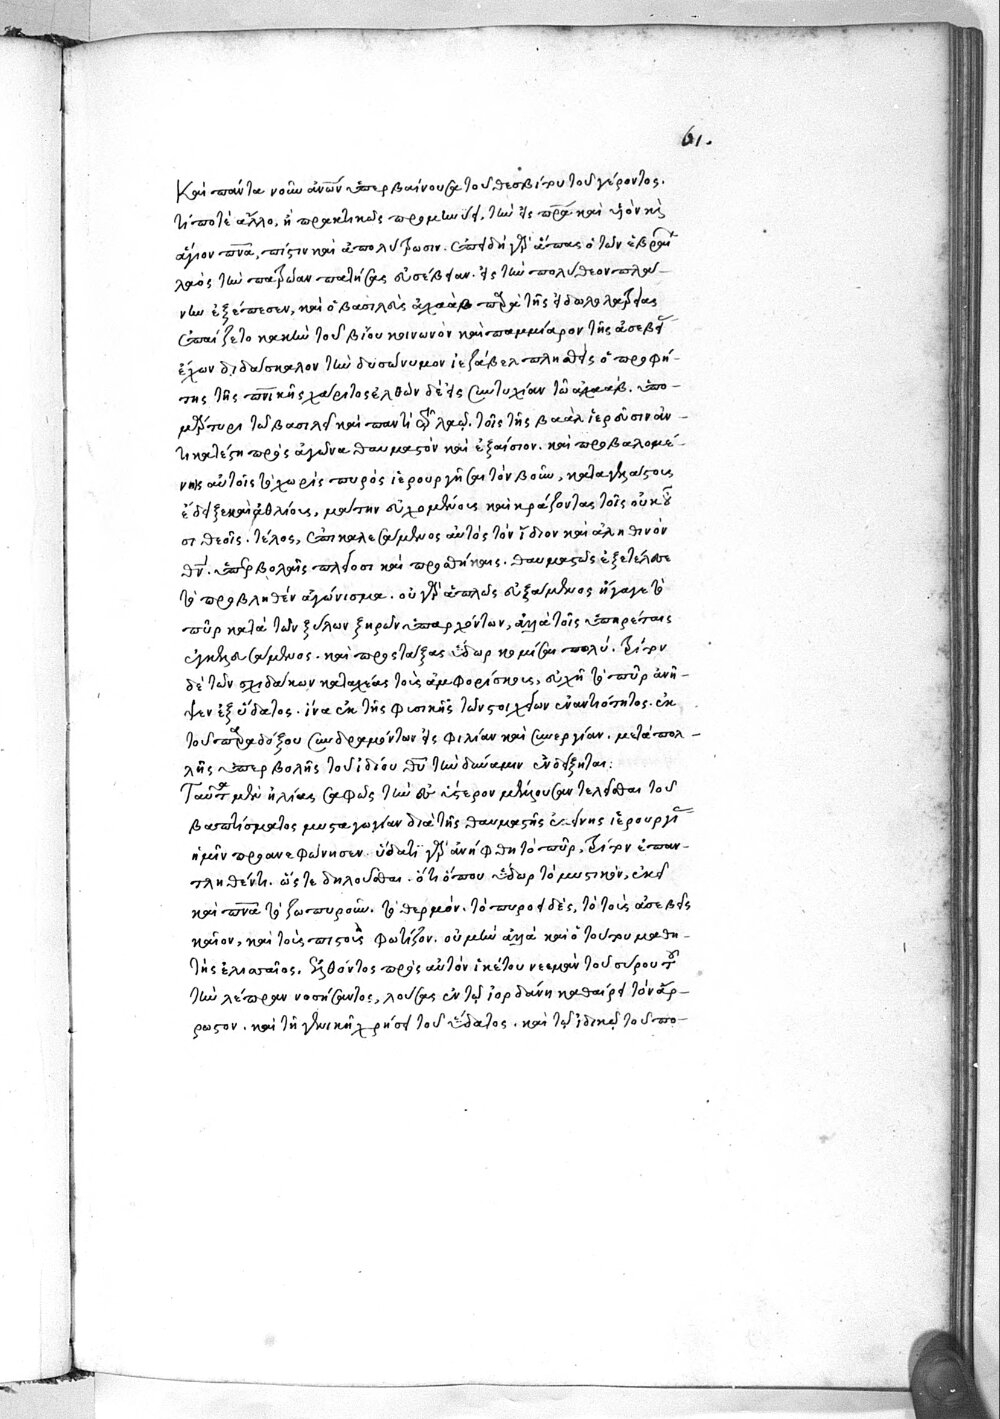 61.
Καὶ πάντα νοῦν ἀνῶν ὑπερβαίνουσα τοῦ θεσβίτου τοῦ γέροντος.
τί ποτὲ ἄλλο, ἢ πρακτικῶς προμηνύει, τὴν εἰς πρα καὶ υἱὸν καὶ
ἅγιον πνα, πίστιν καὶ ἀπολύτρωσιν. ἐπειδὴ γὰρ ἅπας ὁ τῶν ἑβραί
λαὸς τὴν πατρώαν πατήσας εὐσέβειαν. εἰς τὴν πολύθεον πλά-
νην ἐξέπεσεν, καὶ ὁ βασιλεὺς ἀχαὰβ παρὰ τῆς εἰδωλολατρείας
τοῦ βίου κοινωνὸν καὶ παμμίαρον τῆς ἀσεβεί
ἔχων διδάσκαλον τὴν δυσώνυμον ἰεζάβελ πλησθεὶς ὁ προφή-
της τῆς πνικῆς χάριτος ἐλθὼν δὲ εἰς συντυχίαν τῶ ἀχαάβ. ὑπο-
μάρτυρι τῶ βασιλεῖ καὶ παντὶ τῶ λαῷ. τοῖς τῆς βαὰλ ἱερεῦσιν ἀν-
τικατέστη πρὸς ἀγῶνα θαυμαστὸν καὶ ἐξαίσιον. καὶ προβαλομέ-
νης αὐτοῖς τὸ χωρὶς πυρὸς ἱερουργῆσαι τὸν βοῦν, καταγελάστους
ἔδειξε καὶ ἀθλίους, μάτην εὐχομένους καὶ κράζοντας τοῖς οὐκ οὖ
σι θεοῖς. τέλος, ἐπικαλεσάμενος αὐτὸς τὸν ἴδιον καὶ ἀληθινὸν
θν. ὑπερβολαῖς πλείοσι καὶ προσθήκαις. θαυμαστῶς ἐξετέλεσε
τὸ προβληθὲν ἀγώνισμα. οὐ γὰρ ἁπλῶς εὐξάμενος ἤγαγε τὸ
πῦρ κατὰ τῶν ξύλων ξηρῶν ὑπαρχόντων, ἀλλὰ τοῖς ὑπηρέταις
ἐγκελευσάμενος. καὶ προστάξας ὕδωρ κομίσαι πολύ. τρίτον
δὲ τῶν σχιδάκων καταχέας τοὺς ἀμφορίσκους, εὐχῆ τὸ πῦρ ἀνῆ-
ψεν ἐξ ὕδατος. ἵνα ἐκ τῆς φυσικῆς τῶν στοιχείων ἐναντιότητος. ἐκ
τοῦ παραδόξου συνδραμόντων εἰς φιλίαν καὶ συνεργίαν. μετὰ πολ-
λῆς ὑπερβολῆς τοῦ ἰδίου θυ τὴν δύναμιν ἐνδείξηται:
Ταῦτα μὲν ἠλίας σαφῶς τὴν εὖ ὕστερον μέλλουσαν τελεῖσθαι τοῦ
βαπτίσματος μυσταγωγίαν διὰ τῆς θαυμαστῆς ἐκείνης ἱερουργί
ἡμῖν προανεφώνησεν. ὕδατι γὰρ ἀνήφθη τὸ πῦρ, τρίτον ἐπαν-
τληθέντι. ὥστε δηλοῦσθαι. ὅτι ὅπου ὕδωρ τὸ μυστικὸν, ἐκεῖ
καὶ πνα τὸ ζωπυροῦν. τὸ θερμὸν. τὸ πυροειδὲς, τὸ τοὺς ἀσεβεῖς
καῖον, καὶ τοὺς πιστοὺς φωτίζον. οὐ μὴν ἀλλὰ καὶ ὁ τούτου μαθη-
τὴς ἐλισσαῖος. ἐλθόντος πρὸς αὐτὸν ἱκέτου νεεμὰν τοῦ σύρου τοῦ
τὴν λέπραν νοσήσαντος, λούσας ἐν τῷ ἰορδάνη καθαίρει τὸν ἄρ-
ρωστον. καὶ τῇ γενικῆ χρήσει τοῦ ὕδατος. καὶ τῷ ἰδικῷ τοῦ πο-